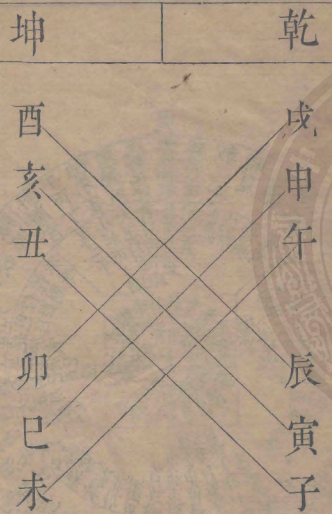 乾
戌
申
午
辰
寅
子
坤
酉
亥
丑
卯
巳
未